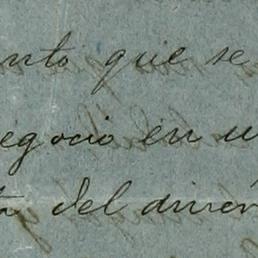 nto que se
egocio en u
ta del diner